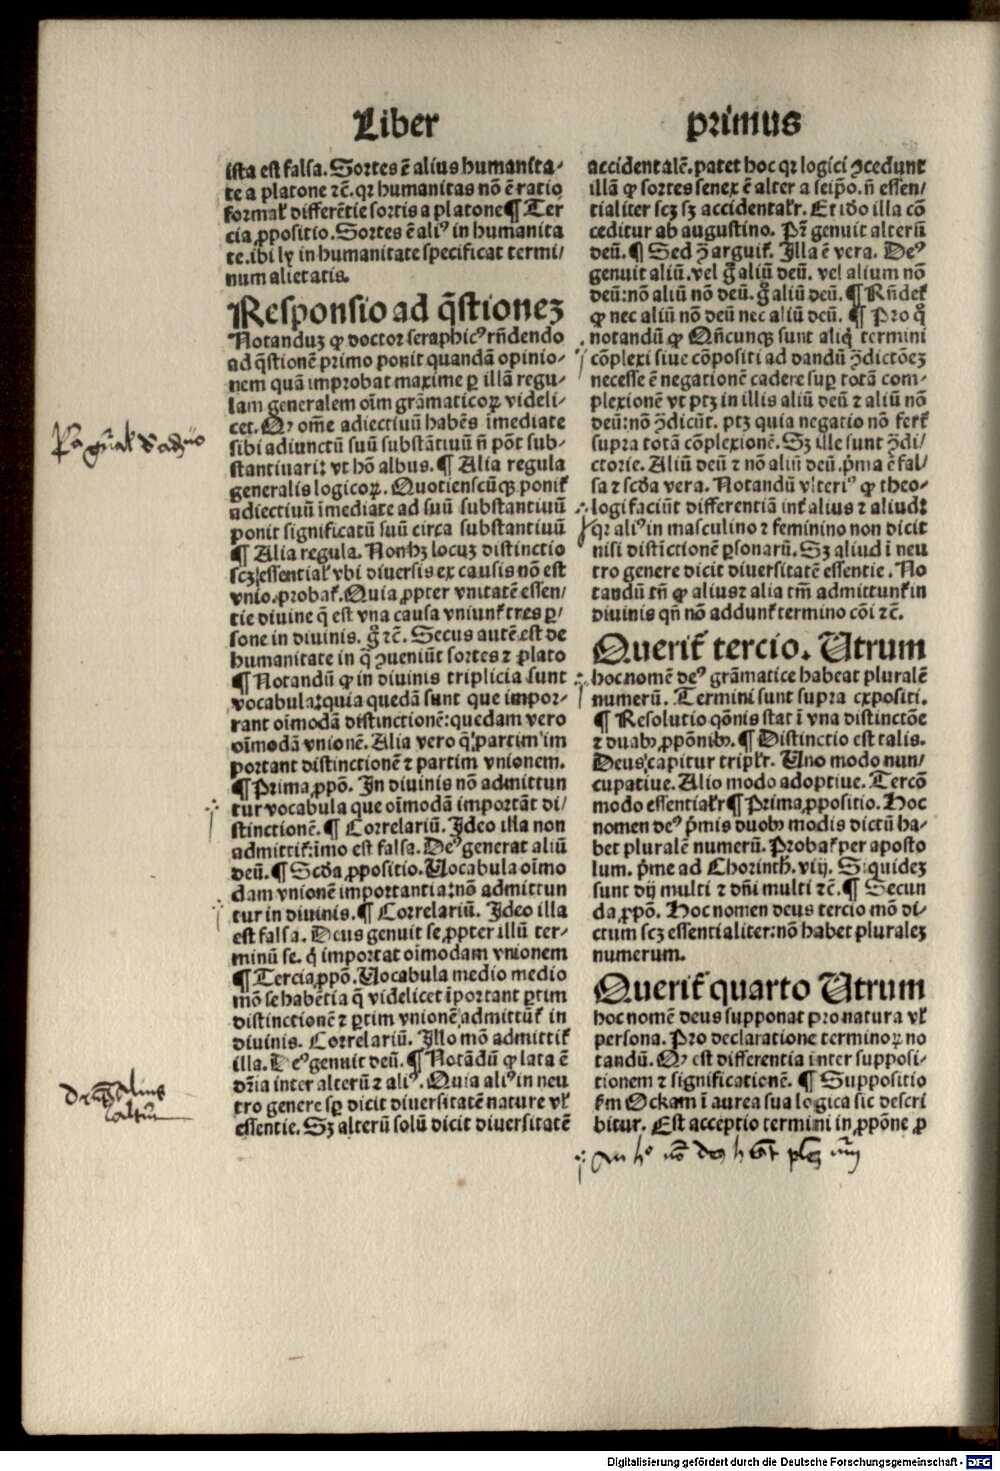 Liber primus
ista est falsa. Sortes ē alius humanita-
te a platone ⁊c̄. qr humanitas nō ē ratio
formał differētie sortis a platone ¶ Ter
cia ꝓpositio. Sortes ē aliꝰ in humanita
te. ibi ly in humanitate specificat termi/
num alietatis.
Responsio ad q̄stioneꝫ
Notanduꝫ ꝙ doctor seraphicꝰ rn̄dendo
ad q̄stionē primo ponit quandā opinio-
nem quā improbat maxime ꝑ illā regu-
lam generalem oīm grāmaticoꝝ videli-
cet. Qꝫ om̄e adiectiuū habēs īmediate
sibi adiunctū suū substātiuū n̄ pōt sub-
stantiuari: vt hō albus. ¶ Alia regula
generalis logicoꝝ. Quotienscūqꝫ ponit̄
adiectiuū īmediate ad suū substantiuū
ponit significatū suū circa substantiuū
¶ Alia regula. Non hꝫ locuꝫ distinctio
scꝫ essential̄ vbi diuersis ex causis nō est
vnio. probat̄. Quia ꝓpter vnitatē essen/
tie diuine q̄ est vna causa vniunt̄ tres ꝑ/
sone in diuinis. g̊ ⁊c̄. Secus autē est de
humanitate in q̄ ꝯueniūt sortes ⁊ plato
¶ Notandū ꝙ in diuinis triplicia sunt
vocabula: quia quedā sunt que impor-
tant oīmodā distinctionē: quedam vero
oīmodā vnionē. Alia vero q̄ partim im
portant distinctionē ⁊ partim vnionem.
¶ Prima ꝓpō. In diuinis nō admittun
tur vocabula que oīmodā importāt di/
stinctionē. ¶ Correlariū. Ideo illa non
admittit̄: īmo est falsa. Deꝰ generat aliū
deū. ¶ Scd̄a ꝓpositio. Vocabula oīmo
dam vnionē importantia: nō admittun
tur in diuinis. ¶ Correlariū. Ideo illa
est falsa. Deus genuit se ꝓpter illū ter-
minū se. q̇ importat oīmodam vnionem
¶ Tercia ꝓpō. Vocabula medio medio
mō se habētia q̄ videlicet īportant ꝑtim
distinctionē ⁊ ꝑtim vnionē admittūt̄ in
diuinis. Correlariū. Illo mō admittit̄
illa. Deꝰ genuit deū. ¶ Notādū ꝙ lata ē
dr̄ia inter alterū ⁊ aliꝰ. Quia aliꝰ in neu
tro genere sꝑ dicit diuersitatē nature vł
essentie. Sꝫ alterū solū dicit diuersitatē
accidentalē. patet hoc qr logici ꝯcedunt
illā ꝙ sortes senex ē alter a seip̄o. n̄ essen/
tialiter scꝫ sꝫ accidentalr̄. Et iđo illa cō
ceditur ab augustino. Pr̄ genuit alterū
deū. ¶ Sed ꝯ̄ arguit̄. Illa ē vera. Deꝰ
genuit aliū. vel g̊ aliū deū. vel alium nō
deū: nō aliū nō deū. g̊ aliū deū. ¶ Rn̄det̄
ꝙ nec aliū nō deū nec aliū deū. ¶ Pro q̊
notandū ꝙ Qn̄cunqꝫ sunt aliq̇ termini
cōplexi siue cōpositi ad dandū ꝯ̄dictōeꝫ
necesse ē negationē cadere suꝑ totā com-
plexionē vt ptꝫ in illis aliū deū ⁊ aliū nō
deū: nō ꝯ̄dicūt. ptꝫ quia negatio nō fert̄
supra totā cōplexionē. Sꝫ ille sunt ꝯ̄di/
ctorie. Aliū deū ⁊ nō aliū deū. p̄ma ē fal/
sa ⁊ scđa vera. Notandū vlteriꝰ ꝙ theo-
logi faciūt differentiā int̄ alius ⁊ aliud:
qr aliꝰ in masculino ⁊ feminino non dicit
nisi distīctionē ꝑsonarū. Sꝫ aliud ī neu
tro genere dicit diuersitatē essentie. No
tandū tn̄ ꝙ alius ⁊ alia tm̄ admittunt̄ in
diuinis qn̄ nō addunt̄ termino cōi ⁊c̄.
Querit̄ tercio. Vtrum
hoc nomē deꝰ grāmatice habeat pluralē
numerū. Termini sunt supra expositi.
¶ Resolutio qōnis stat ī vna distinctōe
⁊ duabꝫ ꝓpōnibꝫ. ¶ Distinctio est talis.
Deus capitur triplr̄. Uno modo nun/
cupatiue. Alio modo adoptiue. Tercō
modo essentialr̄ ¶ Prima ꝓpositio. Hoc
nomen deꝰ p̄mis duobꝫ modis dictū ha-
bet pluralē numerū. Probat̄ per aposto
lum. p̄me ad Chorinth̄. viij. Siquideꝫ
sunt dij multi ⁊ dn̄i multi ⁊c̄. ¶ Secun
da ꝓpō. Hoc nomen deus tercio mō di/
ctum scꝫ essentialiter: nō habet pluraleꝫ
numerum.
Querit̄ quarto Vtrum
hoc nomē deus supponat pro natura vł
persona. Pro declaratione terminoꝝ no
tandū. Qꝫ est differentia inter supposi-
tionem ⁊ significationē. ¶ Suppositio
fm Ockam ī aurea sua logica sic descri
bitur. Est acceptio termini in ꝓpōne ꝓ
Digitalisierung gefördert durch die Deutsche Forschungsgemeinschaft - DFG